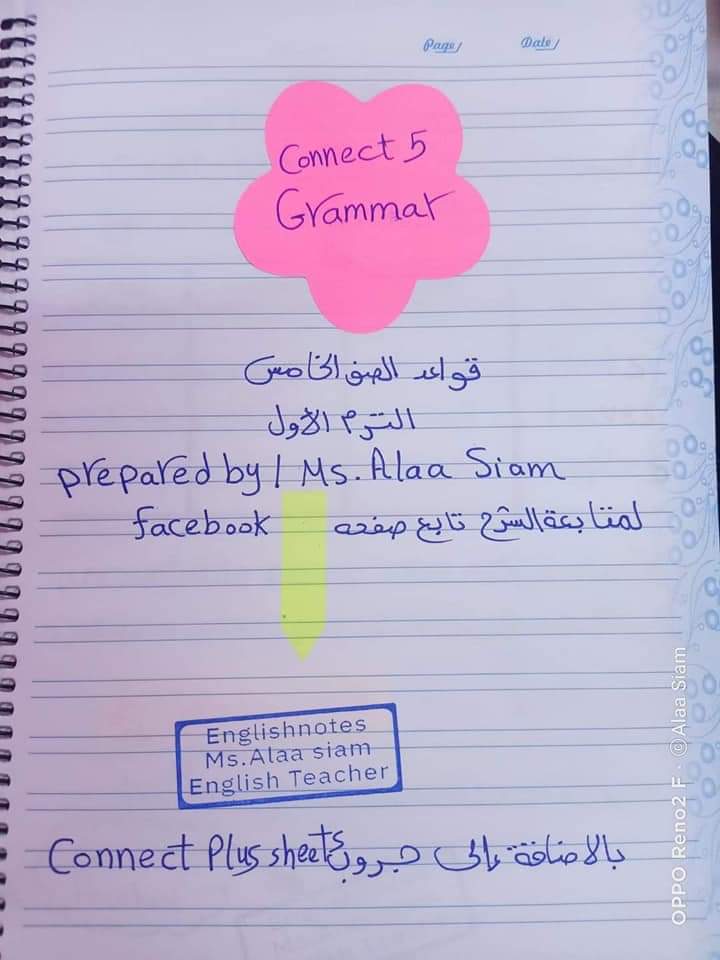 Page/ Date/
Connect 5
Grammar
قواعد الصف الخامس
الترم الأول
prepared by / Ms. Alaa Siam
لمتابعة الشرح تابع صفحه facebook
Englishnotes
Ms.Alaa siam
English Teacher
بالاضافة إلى جروب Connect Plus sheets
OPPO Reno2 F · ©Alaa Siam